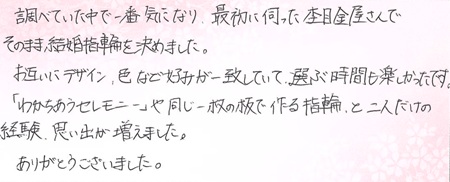 調べていた中で一番気になり、最初に伺った杢目金屋さんで
そのまま結婚指輪を決めました。
お互いにデザイン、色など好みが一致していて、選ぶ時間も楽しかったです。
「わかちあうセレモニー」や同じ一枚の板で作る指輪、と二人だけの
経験、思い出が増えました。
ありがとうございました。